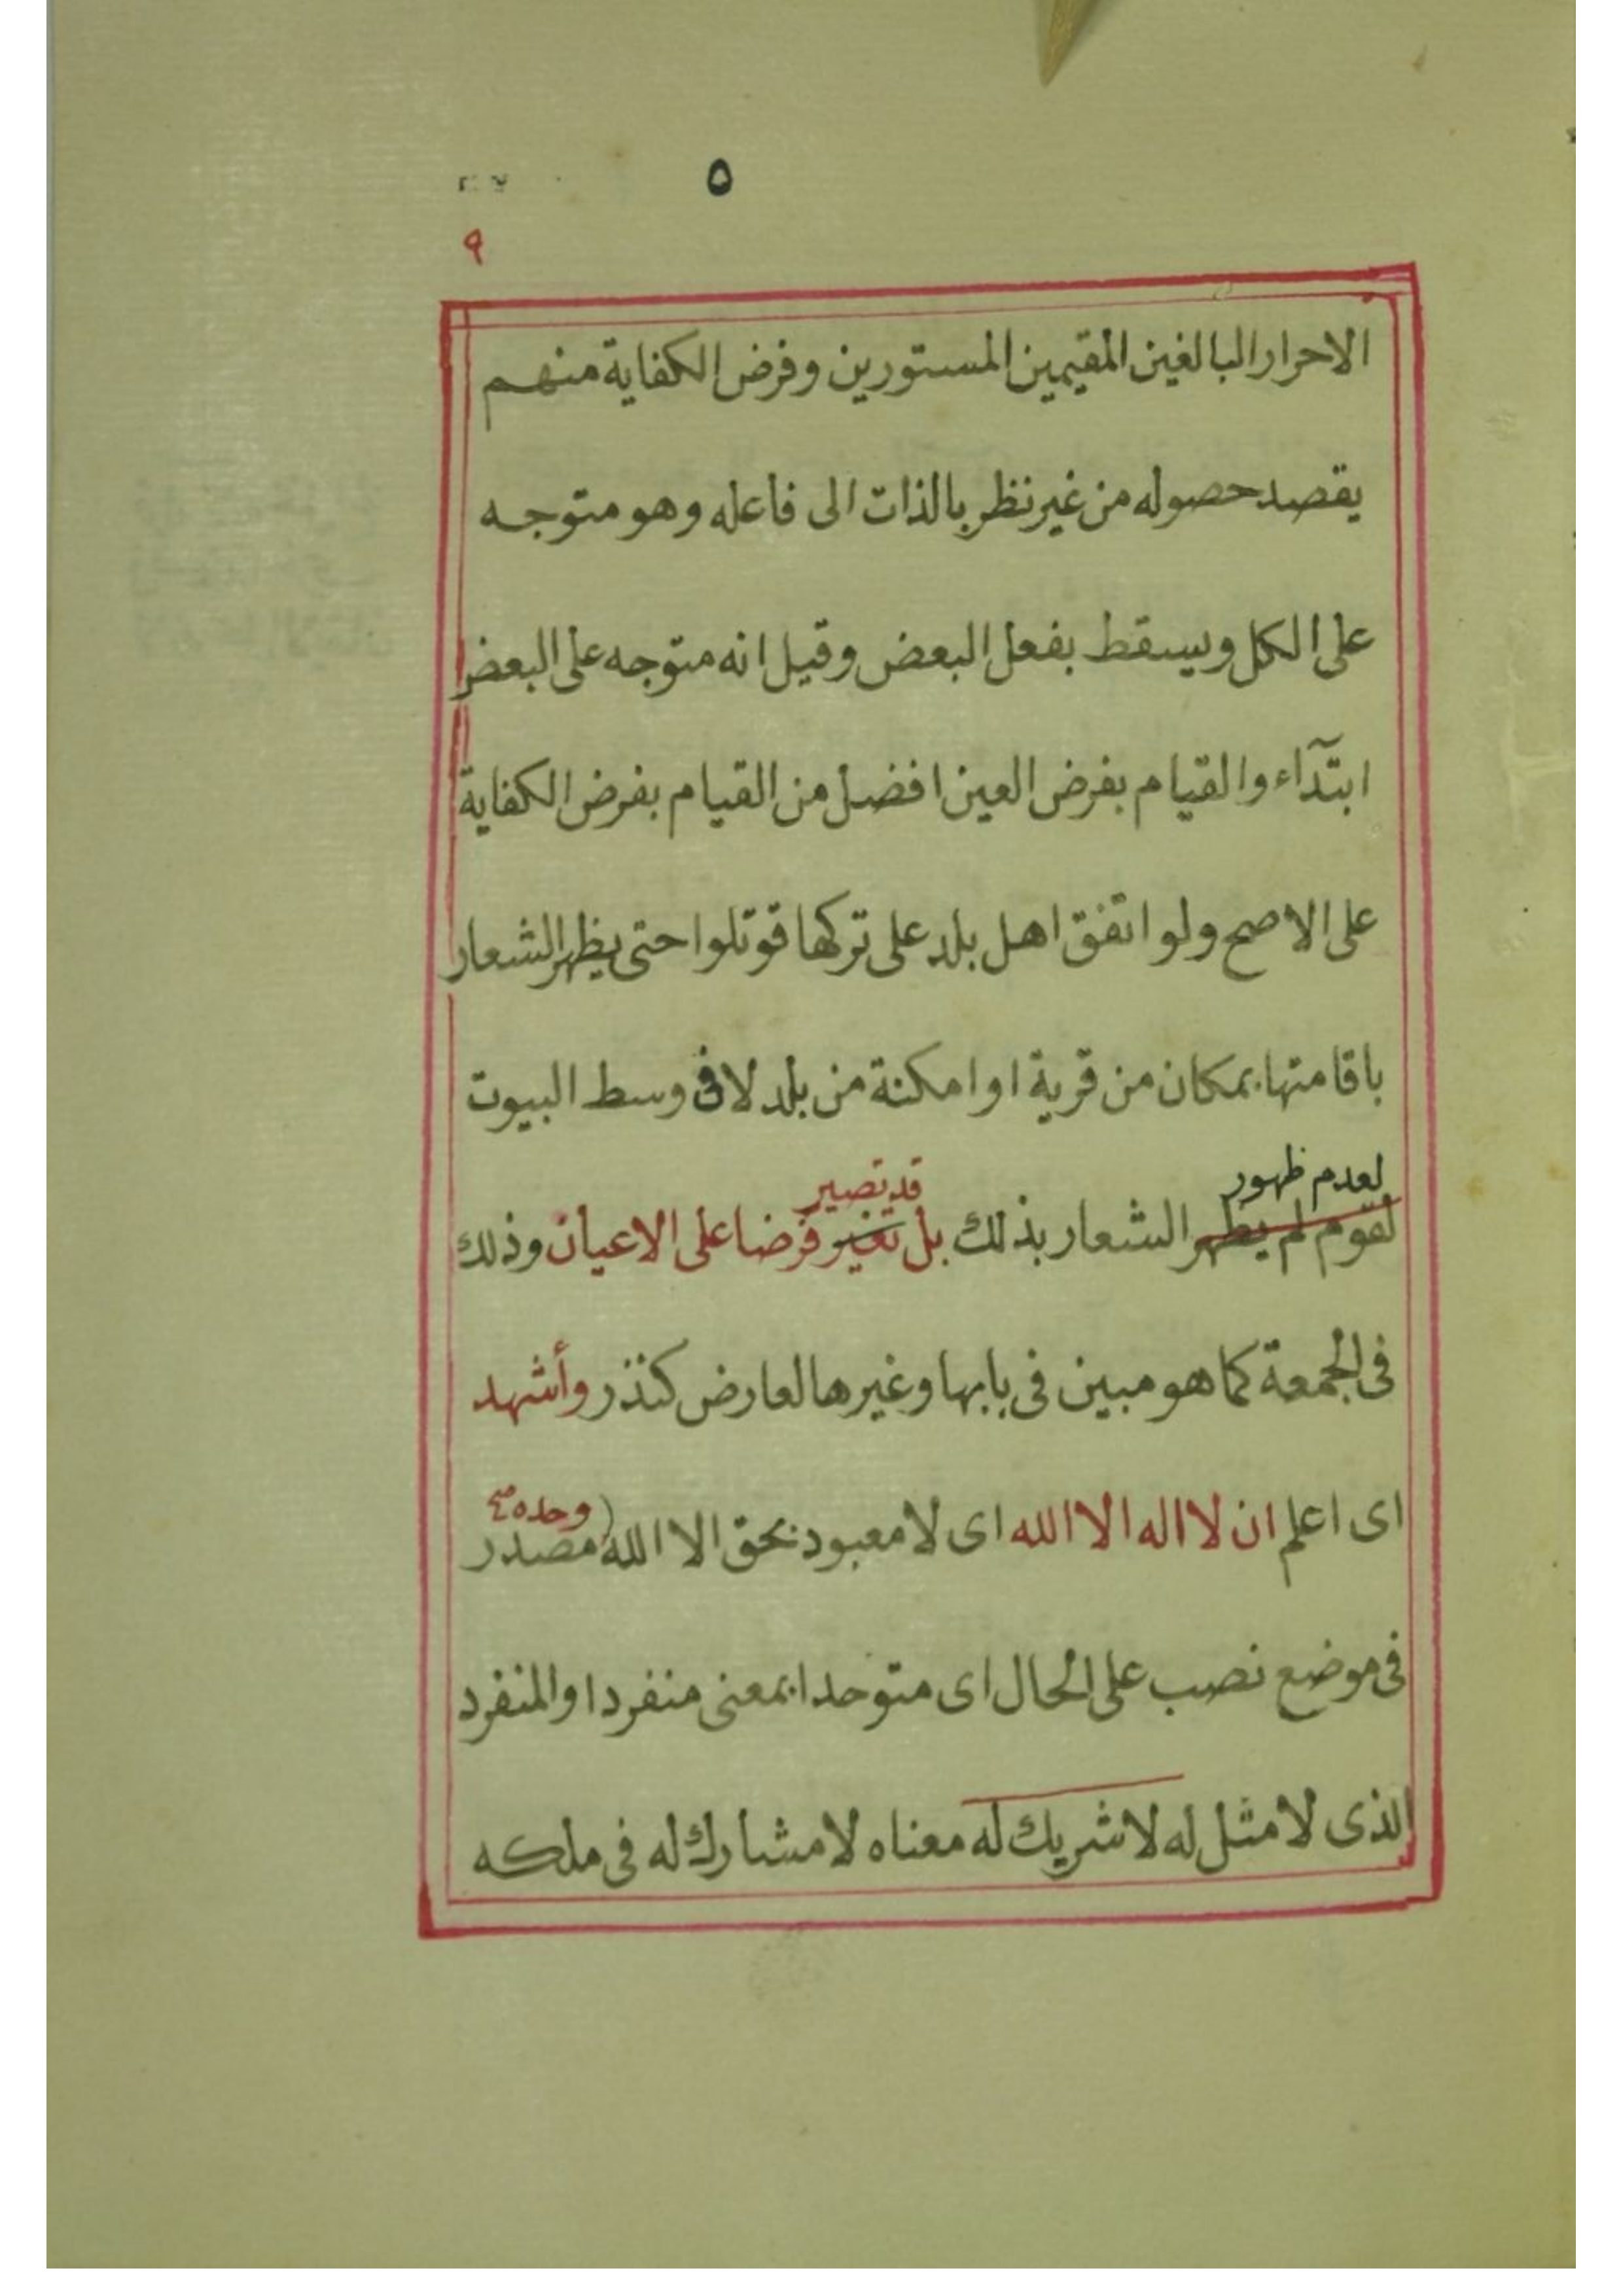 ٥
٩
الاحرار البالغين المقيمين المستورين وفرض الكفاية منهم
يقصد حصوله من غير نظر بالذات الى فاعله وهو متوجه
على الكل ويسقط بفعل البعض وقيل انه متوجه على البعض
ابتدآء والقيام بفرض العين افضل من القيام بفرض الكفاية
على الاصح ولو اتفق اهل بلد على تركها قوتلوا حتى يظهر الشعار
باقامتها بمكان من قرية او امكنة من بلد لا فى وسط البيوت
لعدم ظهور قد تصير
لقوم لم يظهر الشعار بذلك بل تغير فرضا على الاعيان وذلك
فى الجمعة كما هو مبين فى بابها وغيرها لعارض كنذر وأشهد
وحده صح
اى اعلم ان لا اله الا الله اى لا معبود بحق الا الله مصدر
فى موضع نصب على الحال اى متوحدا بمعنى منفردا والمنفرد
الذى لا مثل له لا شريك له معناه لا مشارك له فى ملكه